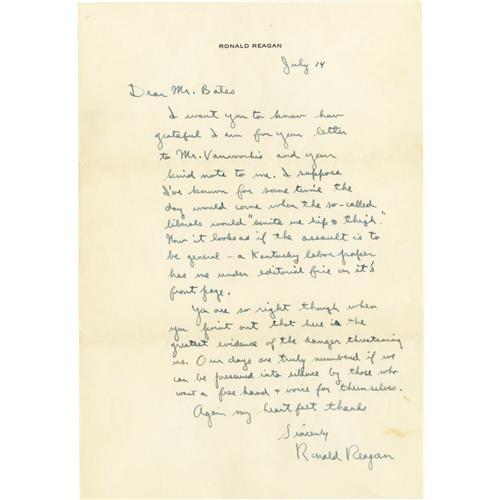 RONALD REAGAN
July 14
Dear Mr. Bates
I want you to know how
grateful I am for your letter
to Mr. Vanvoorhis and your
kind note to me. I suppose
I've known for some time the
day would come when the so-called
liberals would "smite me hip & thigh."
Now it looks as if the assault is to
be general – a Kentucky labor paper
has me under editorial fire on it's
front page.
You are so right though when
you point out that here is the
greatest evidence of the danger threatening
us. Our days are truly numbered if we
can be pressured into silence by those who
want a free hand & voice for themselves.
Again my heart felt thanks
Sincerely
Ronald Reagan